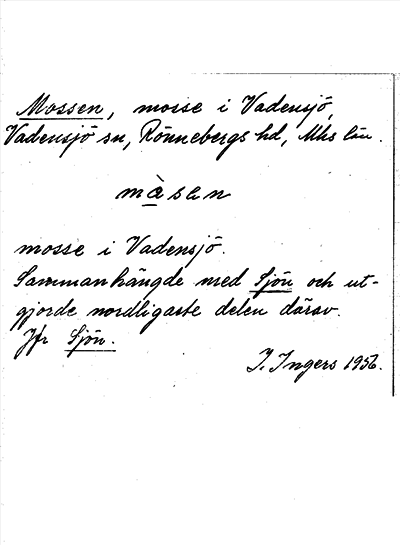 Mossen, mosse i Vadensjö,
Vadensjö sn, Rönnebergs hd, Mhs län.
mɑ̀sɘn
mosse i Vadensjö.
Sammanhängde med Sjön och ut-
gjorde nordligaste delen därav.
Jfr Sjön.
I. Ingers 1956.